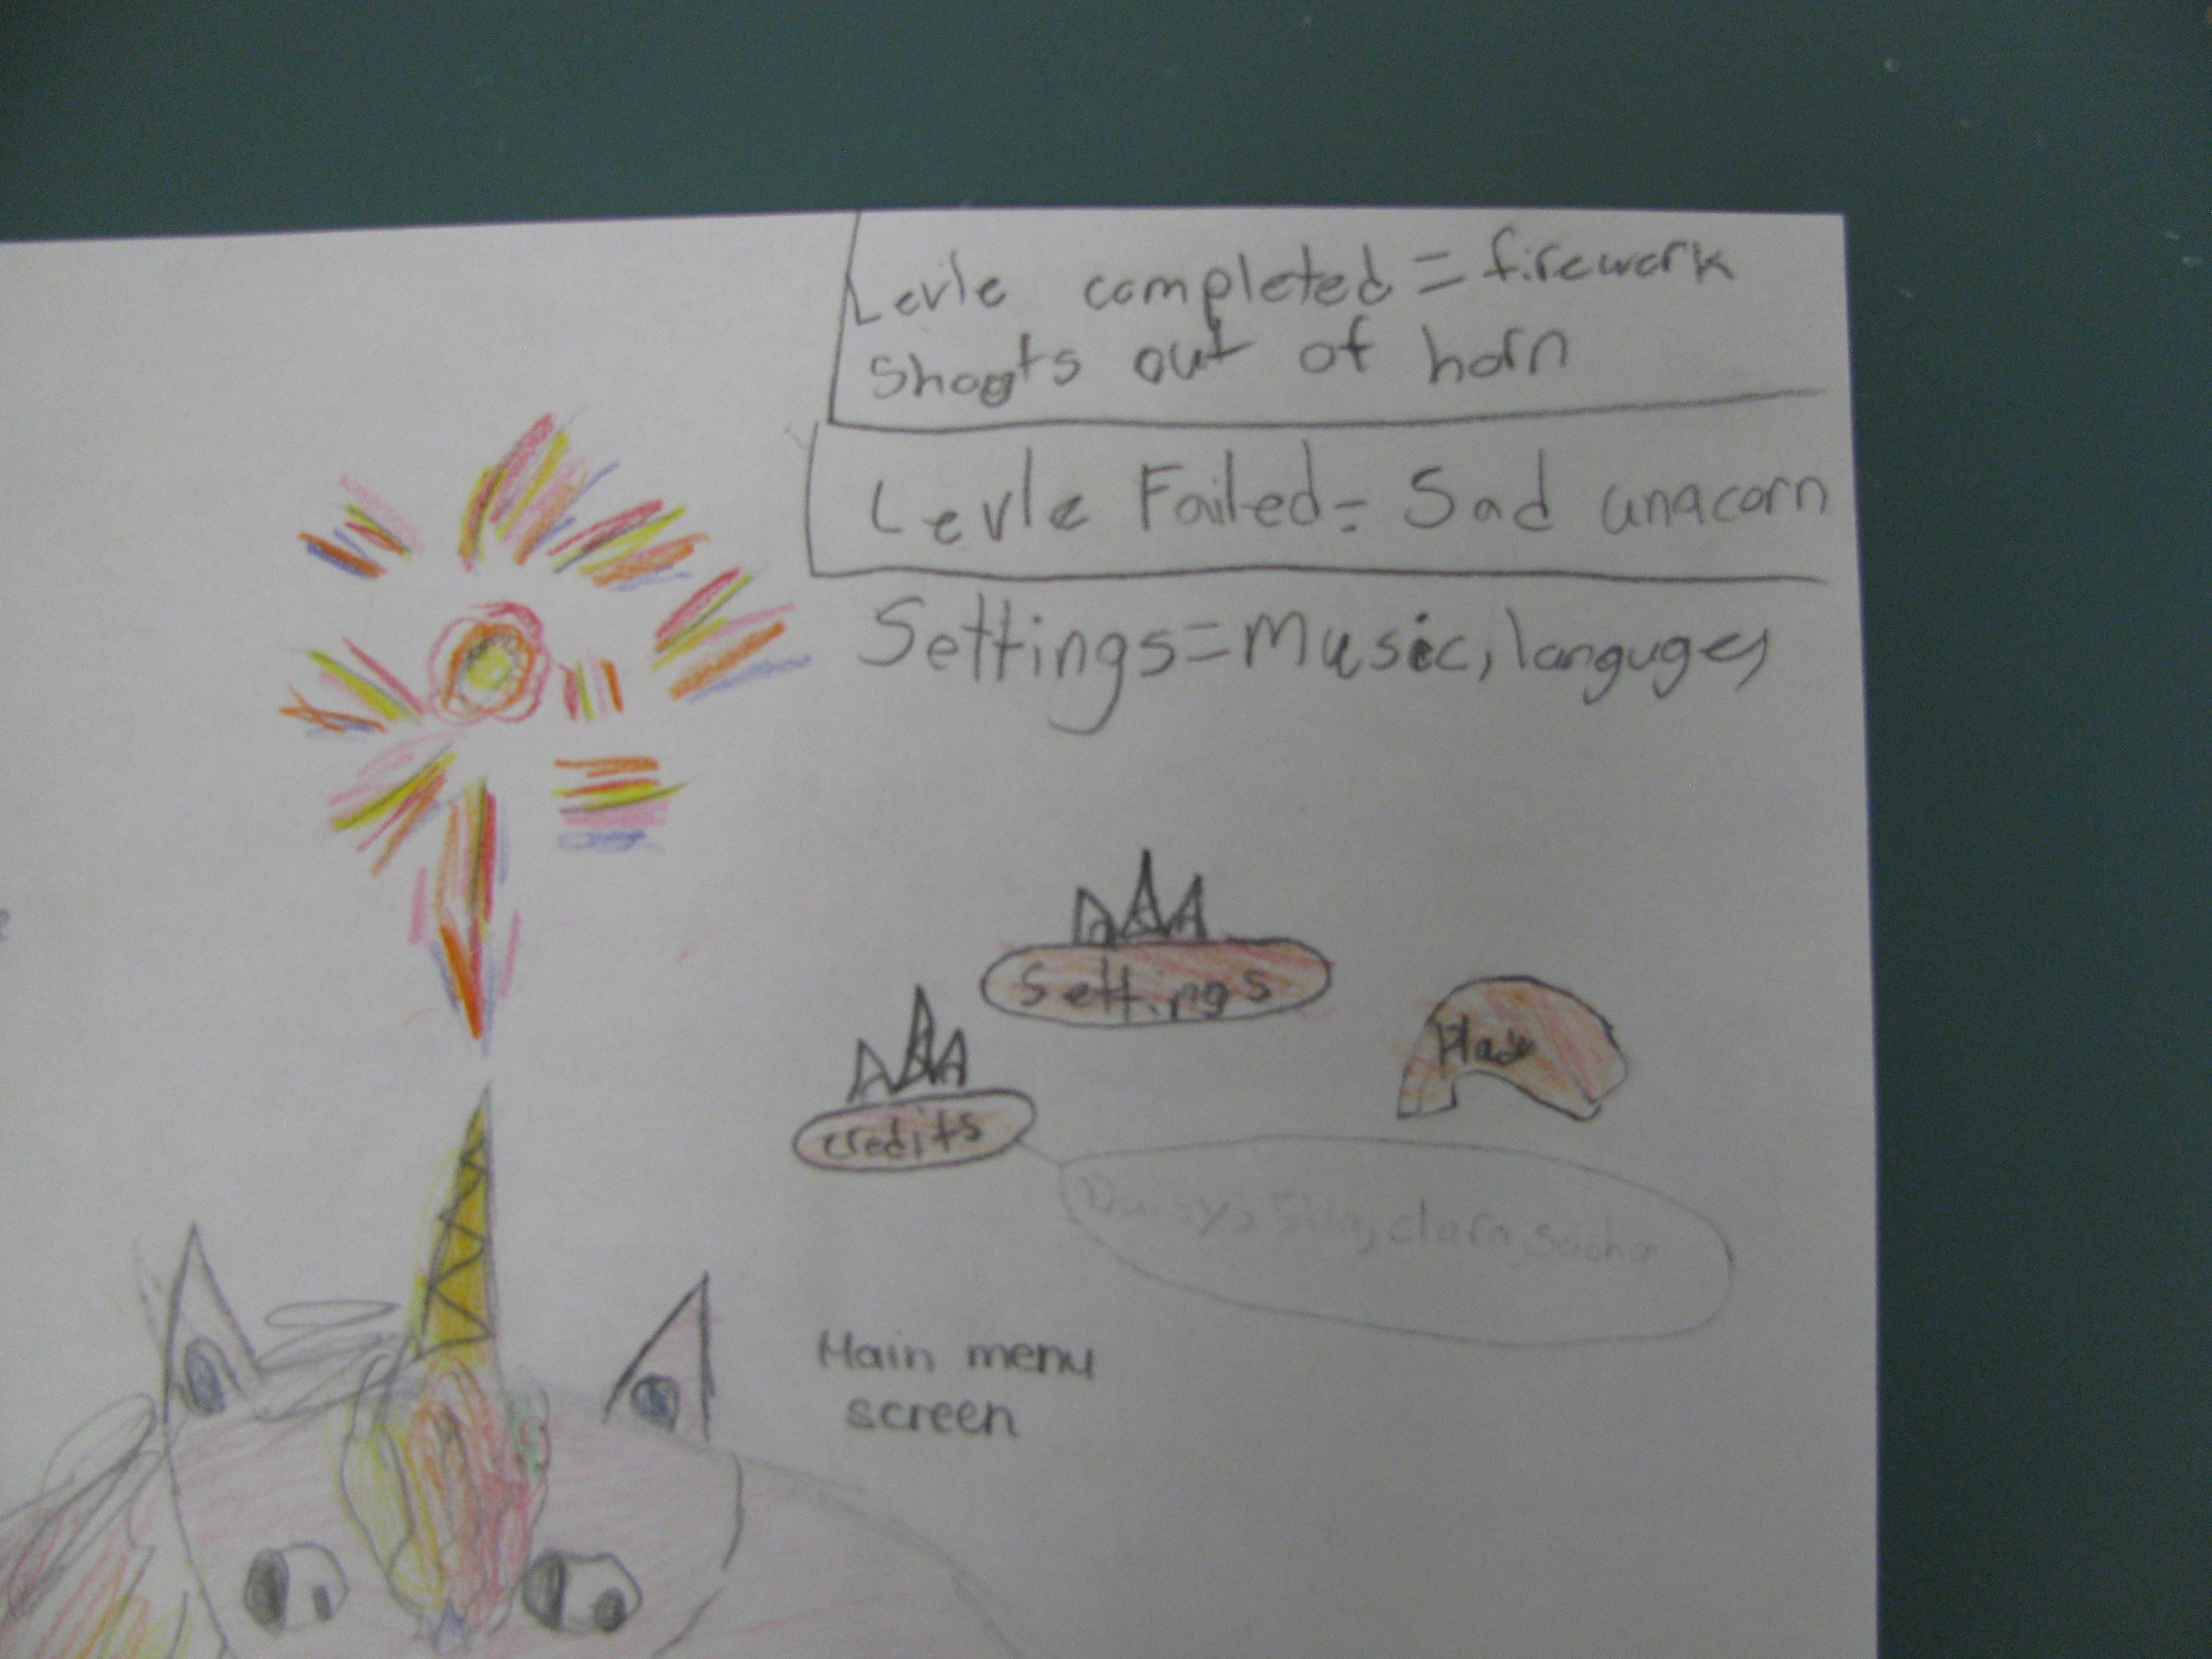 Levle completed = firework
Shoots out of horn
Levle Failed = Sad unacorn
Settings = Music, languges
Settings
Play
credits
Daisy, clara,
Main menu
screen